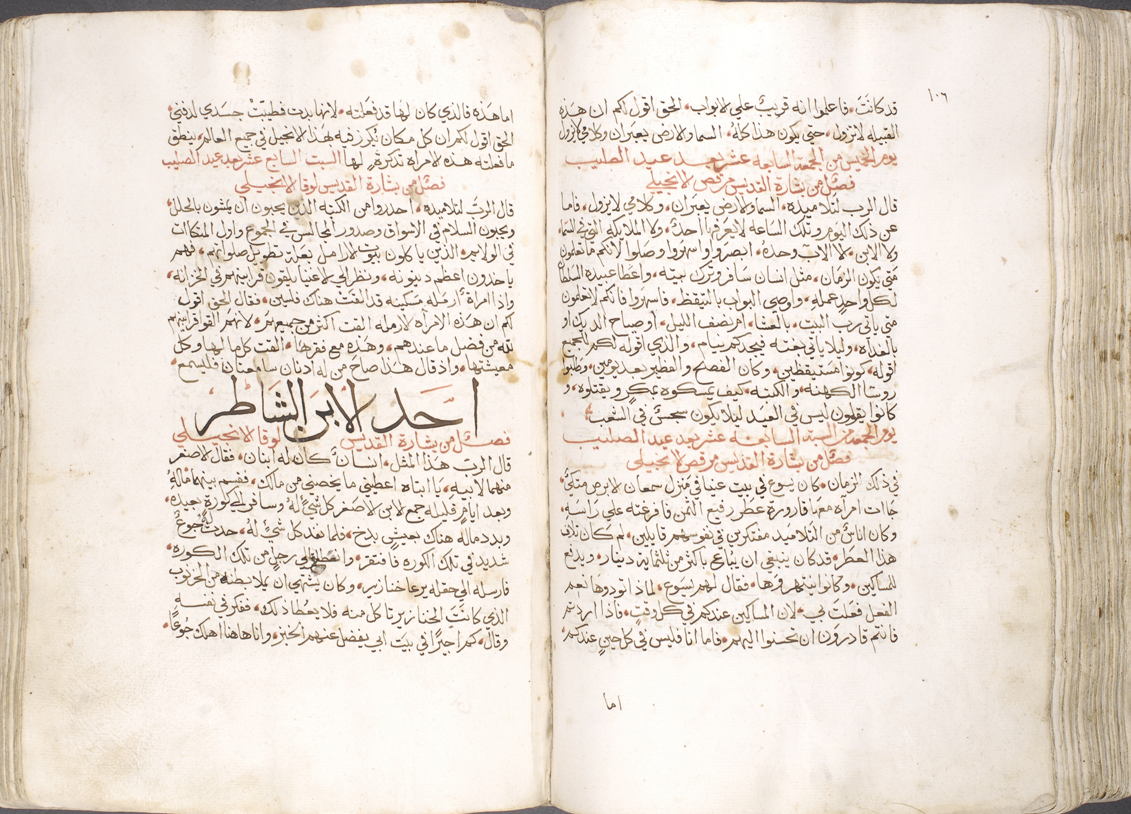 ١٠٦
قد كانت، فاعلموا انه قريبٌ علي الابواب، الحق اقول لكم ان هذه
القبيله لا تزول، حتي يكون هذا كلهُ، السما والارض يعبران وكلامي لا يزول
يوم الخميس من الجمعة السابعة عشر بعد عيد الصليب
فصلٌ من بشارة القديس مرقص الانجيلي
قال الرب لتلاميذه، السما والارض يعبران، وكلامي لا يزول، فاما
عن ذلك اليوم وتلك الساعه لا يعرفها احدٌ، ولا الملايكه الذي في السما
ولا الابن، الا الاب وحدهُ، ابصروا واسهروا وصلوا لانكم ما تعلمون
متي يكون الزمان، مثل انسان سافر وترك بيته، واعطا عبيده السلطان
لكل واحدٍ عمله، واوصي البواب بالتيقظ، فاسهروا فانكم لا تعلمون
متي ياتي رب البيت، بالعشا، ام نصف الليل، او صياح الديك او
بالغداه، وليلا ياتي بغتة فيجدكم نيام، والذي اقوله لكم للجميع
اقوله، كونوا مستيقظين، وكان الفصح والفطير بعد يومين، وطلبوا
روسا الكهنه، والكتبه، كيف يمسكوه بمكرٍ ويقتلوه، و
كانوا يقولون ليس في العيد ليلا يكون سجسٌ في الشعب،
يوم الجمعة من السبة السابعة عشر بعد عيد الصليب
فصلٌ من بشارة القديس مرقص الانجيلي
في ذلك الزمان، كان يسوع في بيت عنيا في منزل سمعان الابرص متكيٌ،
جاات امراه معها قارورة عطر رفيع الثمن فافرغته علي راسه،
وكان اناسٌ من التلاميذ مفتكرين في نفوسهم قايلين، لم كان تلاف
هذا العطر، قد كان ينبغي ان يباع باكثر من ثلثماية دينار، ويدفع
للمساكين، وكانوا ينتهروها، فقال لهم يسوع، لماذا تودوها نعم
الفعل فعلت بي، لان المساكين عندكم في كل وقتٍ، فاذا اردتم
فانتم قادرون ان تحسنوا اليهم، فاما انا فليس في كل حينٍ عندكم،
اما
اما هذه فالذي كان لها قد فعلته، لانها بدت فطيبت جسدي لدفني،
الحق اقول لكم ان كل مكان يُكرز فيه بهذا الانجيل في جميع العالم، ينطق
ما فعلته هذه الامراه تذكرةً لها السبت السابع عشر بعد عيد الصليب
فصلٌ من بشارة القديس لوقا الانجيلي
قال الرب لتلاميذه، احذروا من الكتبه الذين يحبون ان يمشون بالحلل
ويحبون السلام في الاسواق وصدور المجالس في الجموع واول المتكات
في الولايم، الذين ياكلون بيوت الارامل بعلة تطويل صلواتهم، فهم
ياخذون اعظم دينونه، ونظر الي الاغنيا يلقون قرابينهم في الخزانه،
واذا امراة ارمله مسكينه قد القت هناك فلسين، فقال الحق اقول
لكم ان هذه الامراه الارمله القت اكثر من جميعهم، لانهم القوا قرابينهم
لله من فضل ما عندهم، وهذه مع فقرها، القت كل ما لها وكل
معيشتها، واذ قال هذا صاح من له اذنان سامعتان فليسمع،
احد الابن الشاطر
فصلٌ من بشارة القديس لوقا الانجيلي
قال الرب هذا المثل، انسانٌ كان له ابنان، فقال الاصغر
منهما لابيه، يا ابتاه اعطيني ما يخصني من مالك، فقسم بينهما ماله،
وبعد ايامٍ قليله جمع الابن الاصغر كل شيٍ لهُ وسافر الي كورةٍ بعيده،
وبدد ماله هناك بعيشٍ بدخ، فلما نفد كل شيٍ لهُ، حدث جوعٌ
شديد في تلك الكوره فافتقر، وانقطع الي رجلٍ من تلك الكوره،
فارسله الي حقله يرعا خنازير، وكان يشتهي ان يملا بطنه من الخرنوب
الذي كانت الخنازير تاكل منه، فلا يعطا ذلك، ففكر في نفسه
وقال، كم اجيراً في بيت ابي يفضل عنهم الخبز، وانا هاهنا اهلك جوعاً،